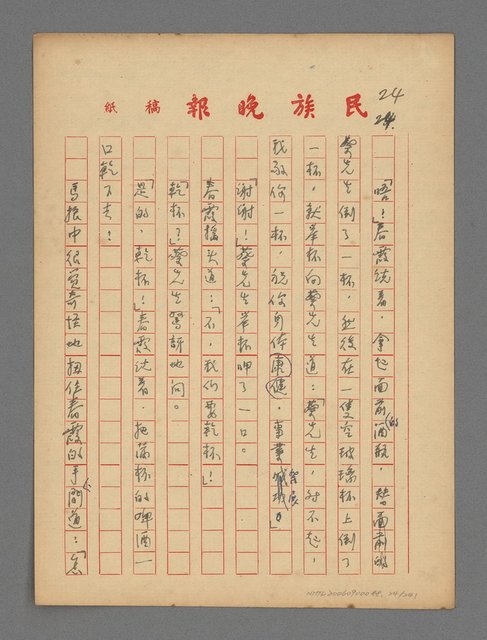 民族晚報 稿紙
24
「唔！」春霞說着，拿起面前的酒瓶，替面前的
蔡先生倒了一杯，然後在一隻空玻璃杯上倒了
一杯，就舉杯向蔡先生道：「蔡先生，對不起，
我敬你一杯，祝你身体康健，事業發展。」
「謝謝！」蔡先生举杯呷了一口。
春霞搖头道：「不，我們要乾杯！」
「乾杯？」蔡先生驚訝地问。
「是的，乾杯！」春霞說着，把滿杯的啤酒一
口乾了去！
馬振中很覺奇怪地扭住春霞的手間道：「怎